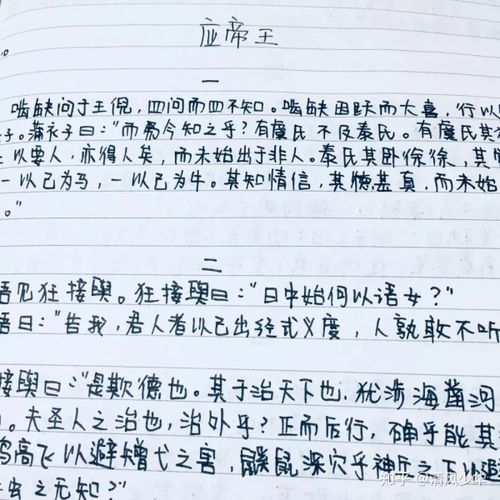 应帝王
一
啮缺问于王倪，四问而四不知。啮缺因跃而大喜，行以
子。蒲衣子曰：“而乃今知之乎？有虞氏不及泰氏。有虞氏其
以要人，亦得人矣，而未始出于非人。泰氏其卧徐徐，其
一以己为马，一以己为牛。其知情信，其德甚真，而未始
。”
二
吾见狂接舆。狂接舆曰：“日中始何以语女？”
吾曰：“告我，君人者以己出经式义度，人孰敢不听
接舆曰：“是欺德也。其于治天下也，犹涉海凿河
。夫圣人之治也，治外乎？正而后行，确乎能其
鸟高飞以避矰弋之害，鼷鼠深穴乎神丘之下以避
虫之无知？”
知乎 @清风少年